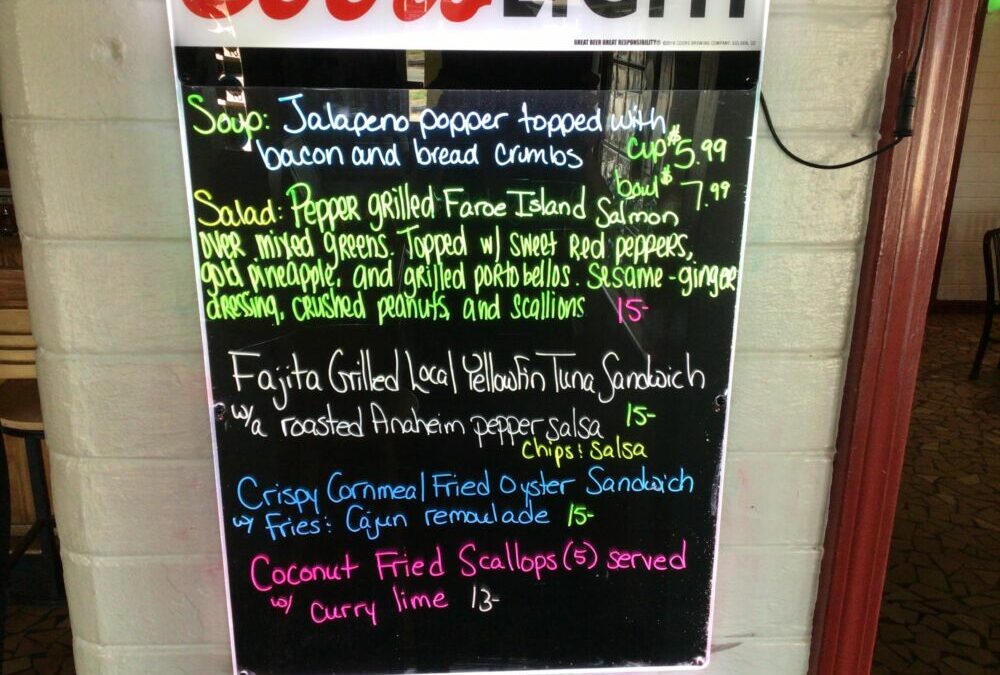 Coors LIGHT
GREAT BEER GREAT RESPONSIBILITY® ©2016 COORS BREWING COMPANY, GOLDEN, CO
Soup: Jalapeno popper topped with
bacon and bread crumbs cup $5.99
bowl $7.99
Salad: Pepper grilled Faroe Island Salmon
over mixed greens. Topped w/ sweet red peppers,
gold pineapple, and grilled portobellos. Sesame-ginger
dressing, crushed peanuts, and scallions 15-
Fajita Grilled Local Yellowfin Tuna Sandwich
w/a roasted Anaheim pepper salsa 15-
chips: salsa
Crispy Cornmeal Fried Oyster Sandwich
w/ Fries: Cajun remoulade 15-
Coconut Fried Scallops (5) served
w/ curry lime 13-